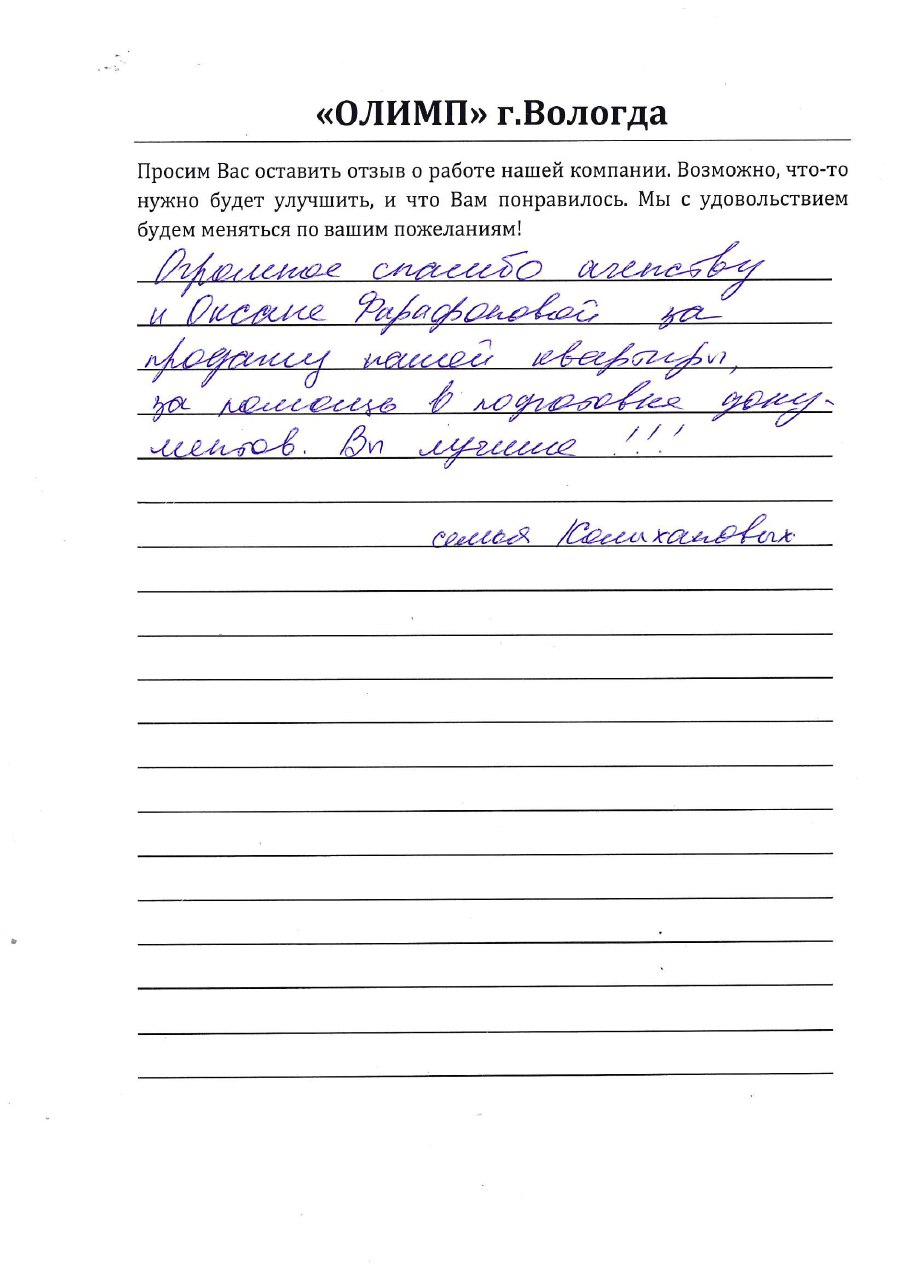 «ОЛИМП» г.Вологда
Просим Вас оставить отзыв о работе нашей компании. Возможно, что-то
нужно будет улучшить, и что Вам понравилось. Мы с удовольствием
будем меняться по вашим пожеланиям!
Огромное спасибо агенству
и Оксане Фарафоновой за
продажу нашей квартиры,
за помощь в подготовке доку-
ментов. Вы лучшие !!!
семья